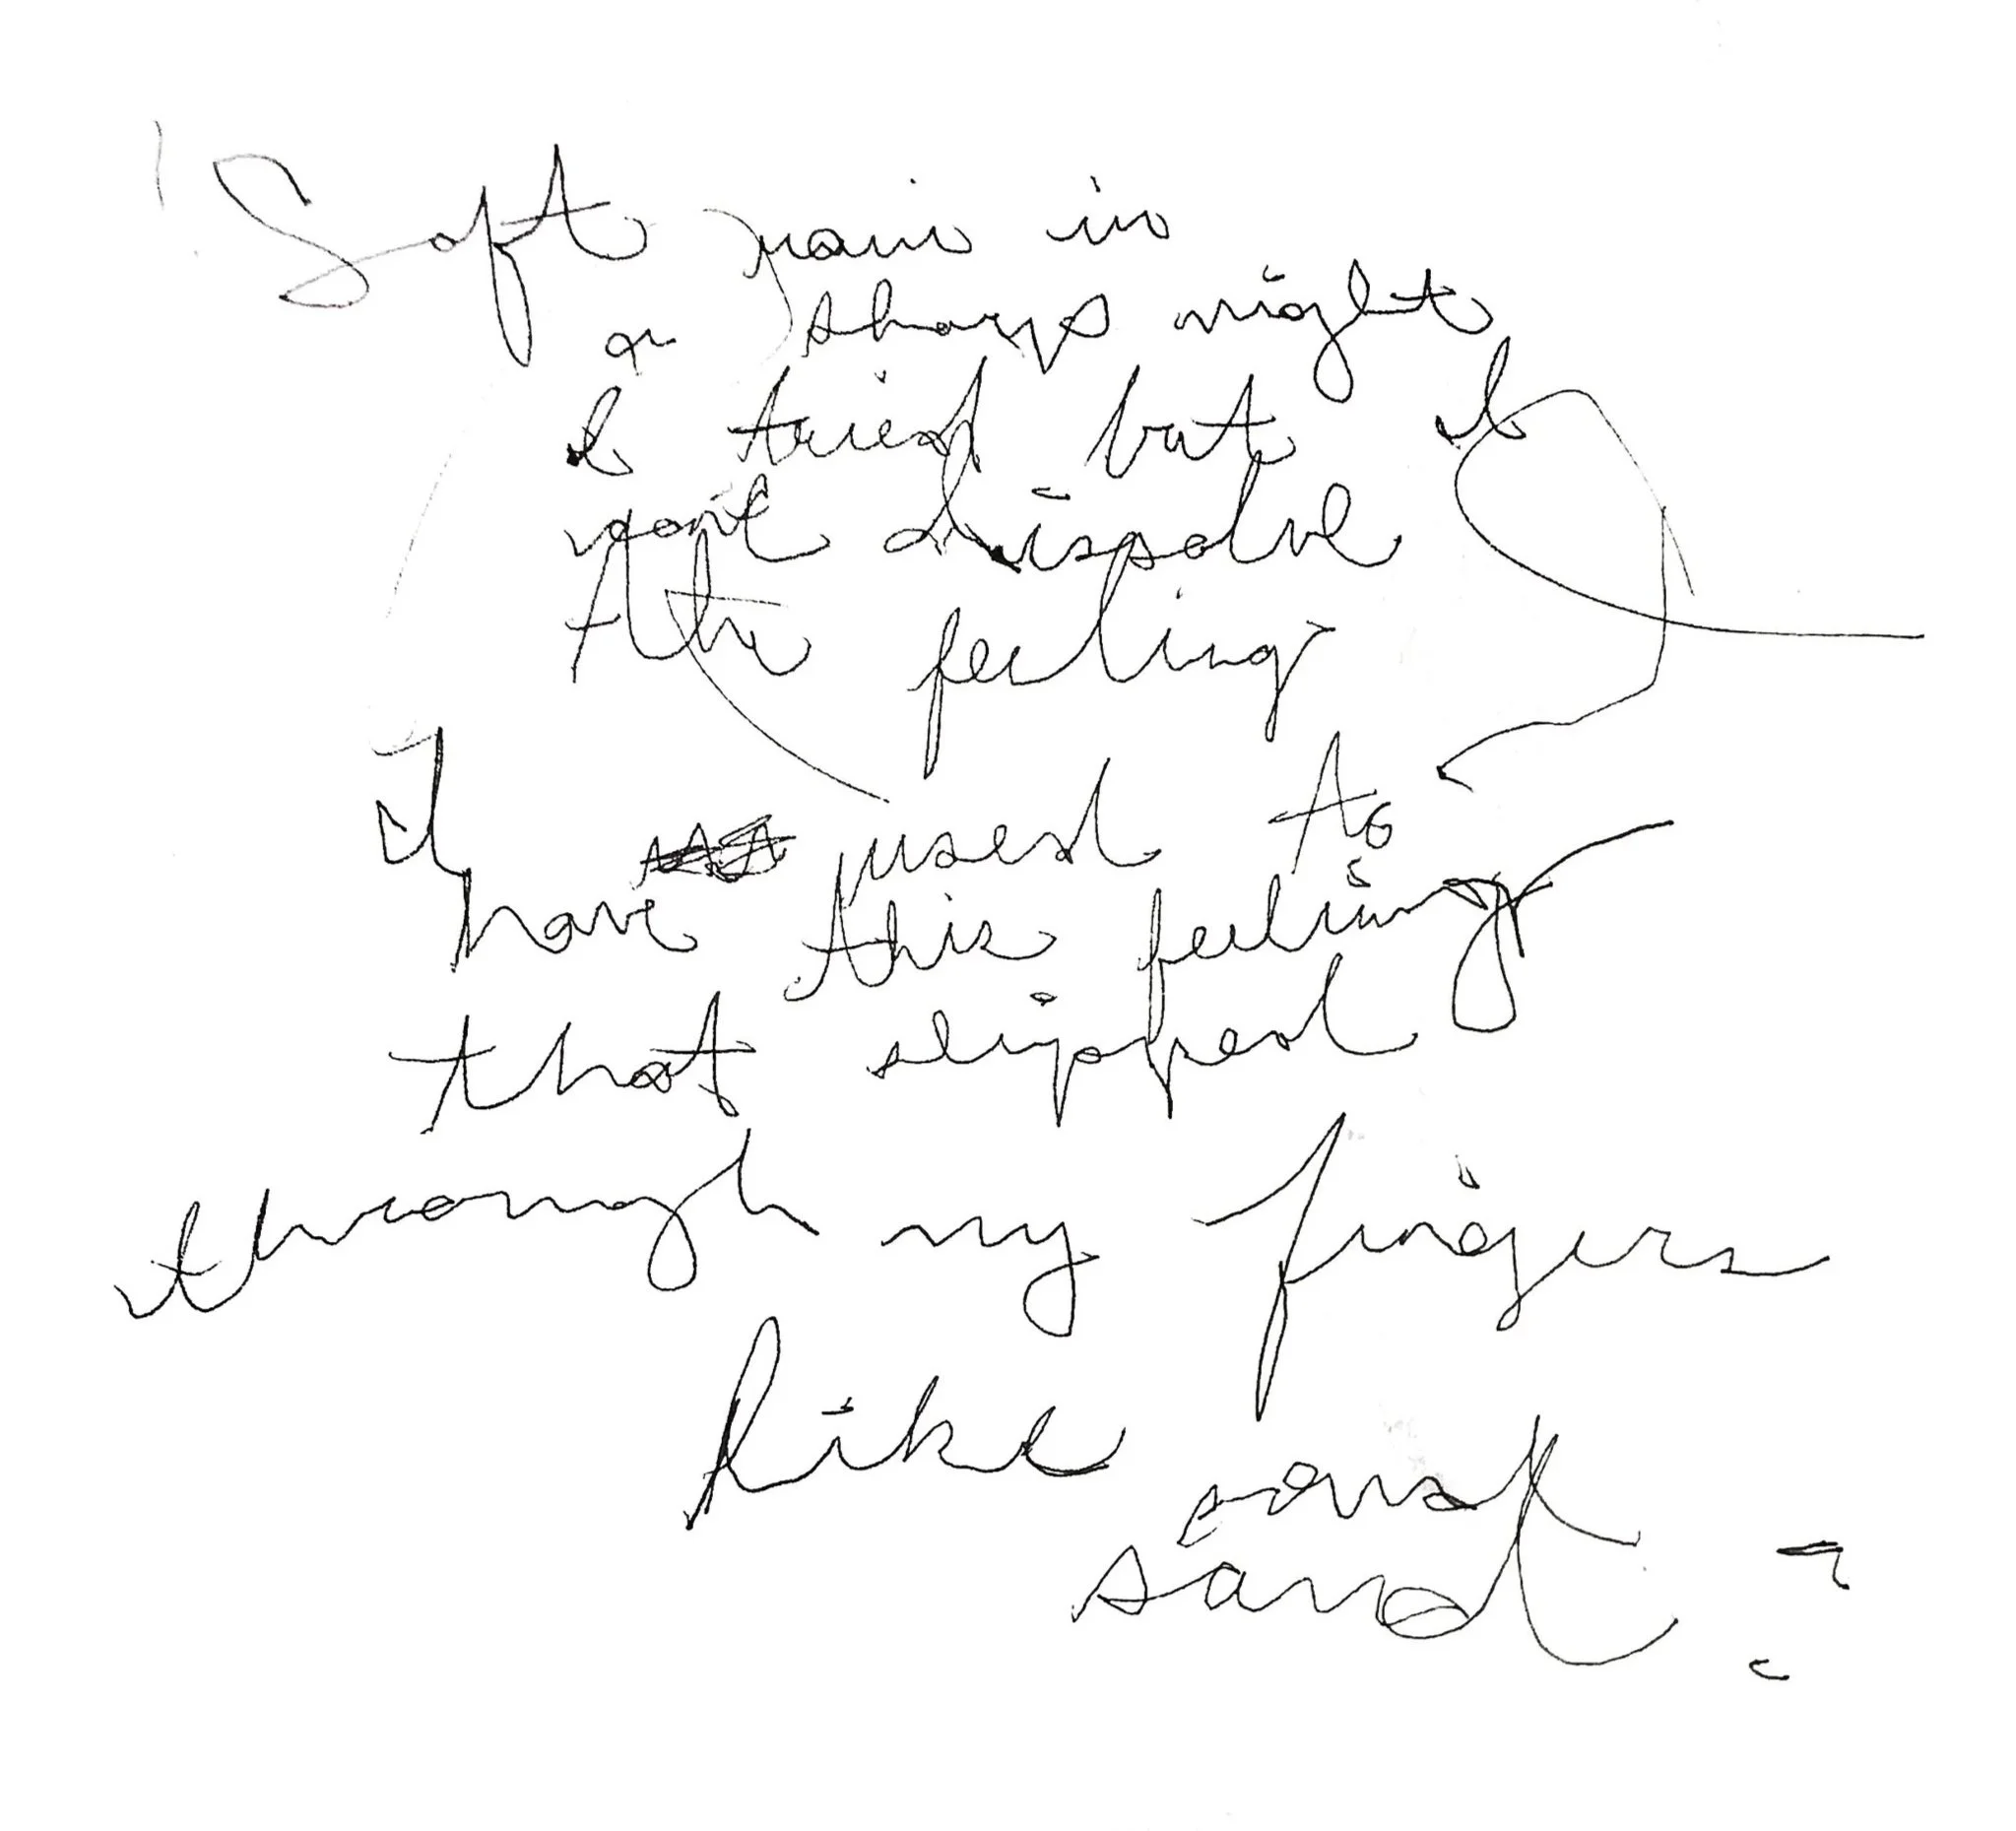 Soft rain in
a sharp night
I tried but I
won't dissolve
the feeling
I used to
have this feeling
that slipped
through my fingers
like
sand